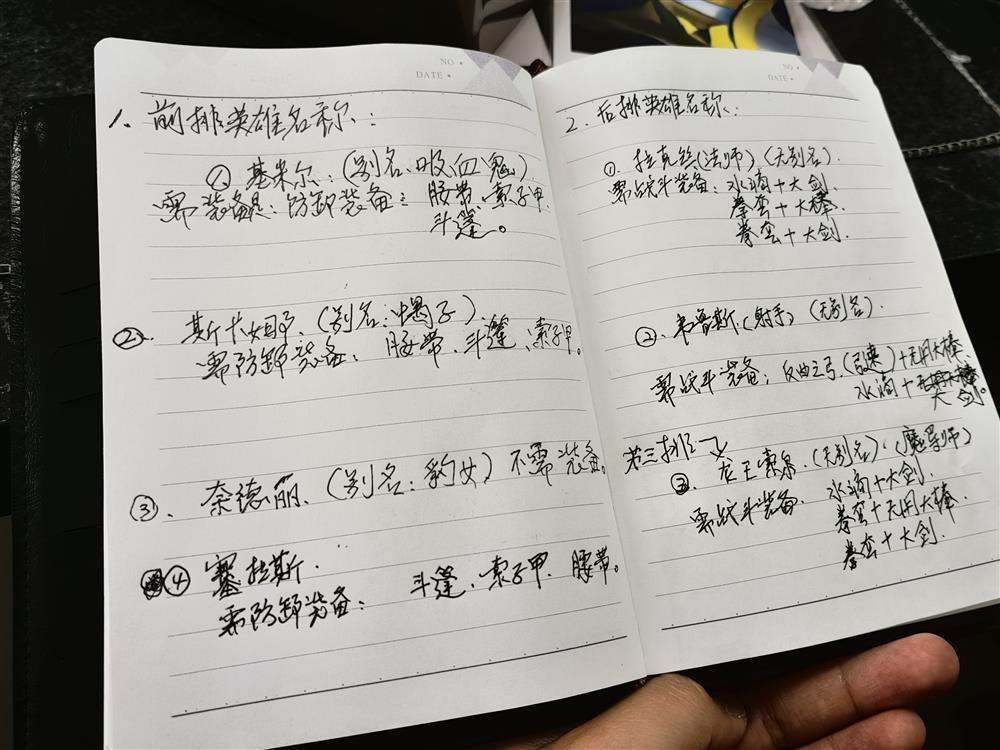 NO •
DATE •
1、前排英雄名称：
① 基米尔：(别名、吸血鬼)
需装备是：防卸装备：腰带、索子甲
斗篷。
②. 斯卡 (别名：蝎子).
需防卸装备： 腰带、斗篷、索子甲。
③. 奈德丽、(别名：豹女) 不需装备。
④ 塞拉斯.
需防卸装备： 斗篷、索子甲、腰带。
NO •
DATE •
2. 后排英雄名称：
①. 拉克丝(法师) (无别名).
需战斗装备：水滴+大剑.
拳套+大棒.
拳套+大剑.
②、韦鲁斯、(射手) (无别名).
需战斗装备：反曲之弓、+无用大棒.
水滴+
大剑。
第三排
③. 龙王索泉、(无别名)、(魔导师)
需战斗装备、 水滴+大剑.
拳套+无用大棒.
拳套+大剑.